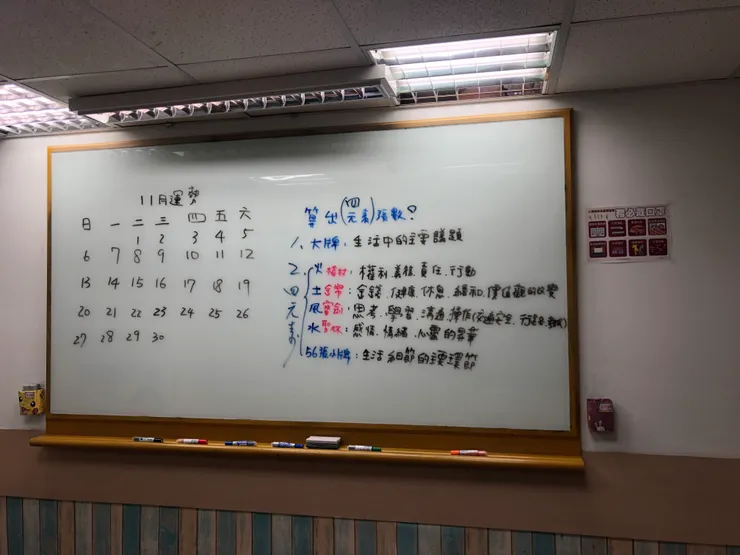 11月運勢
日 一 二 三 四 五 六
1 2 3 4 5
6 7 8 9 10 11 12
13 14 15 16 17 18 19
20 21 22 23 24 25 26
27 28 29 30
算出(四元素)張數?
1. 大牌:生活中的主要議題
2. 四元素
火 權杖:權利義務、責任、行動
土 金幣:金錢、健康、休息、緩和、價值觀的改變
風 寶劍:思考、學習、溝通、操作(交通安全、行
水 聖杯:感情、情緒、心靈的昇華
56張小牌:生活細節的主要環節